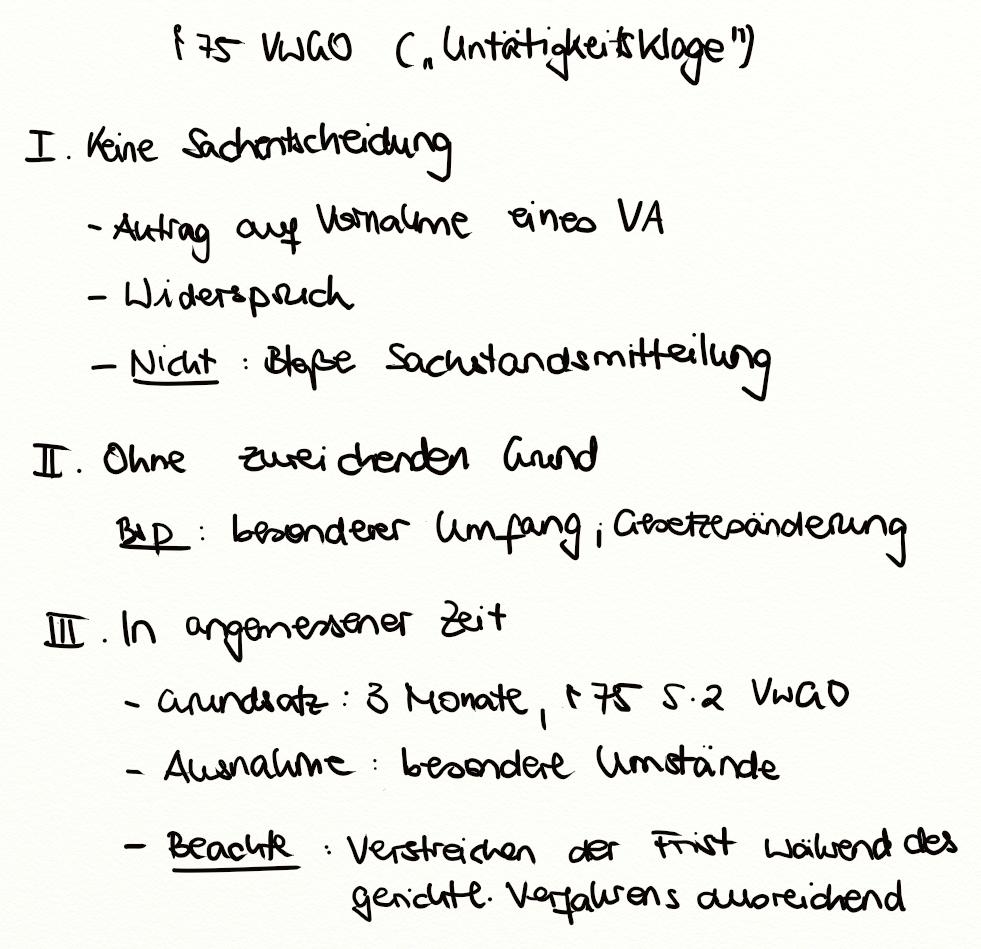 § 75 VwGO („Untätigkeitsklage")
I. Keine Sachentscheidung
- Antrag auf Vornahme eines VA
- Widerspruch
- Nicht: Bloße Sachstandsmitteilung
II. Ohne zureichenden Grund
Bsp: besonderer Umfang; Gesetzesänderung
III. In angemessener Zeit
- Grundsatz: 3 Monate, § 75 S. 2 VwGO
- Ausnahme: besondere Umstände
- Beachte: Verstreichen der Frist während des
gerichtl. Verfahrens ausreichend